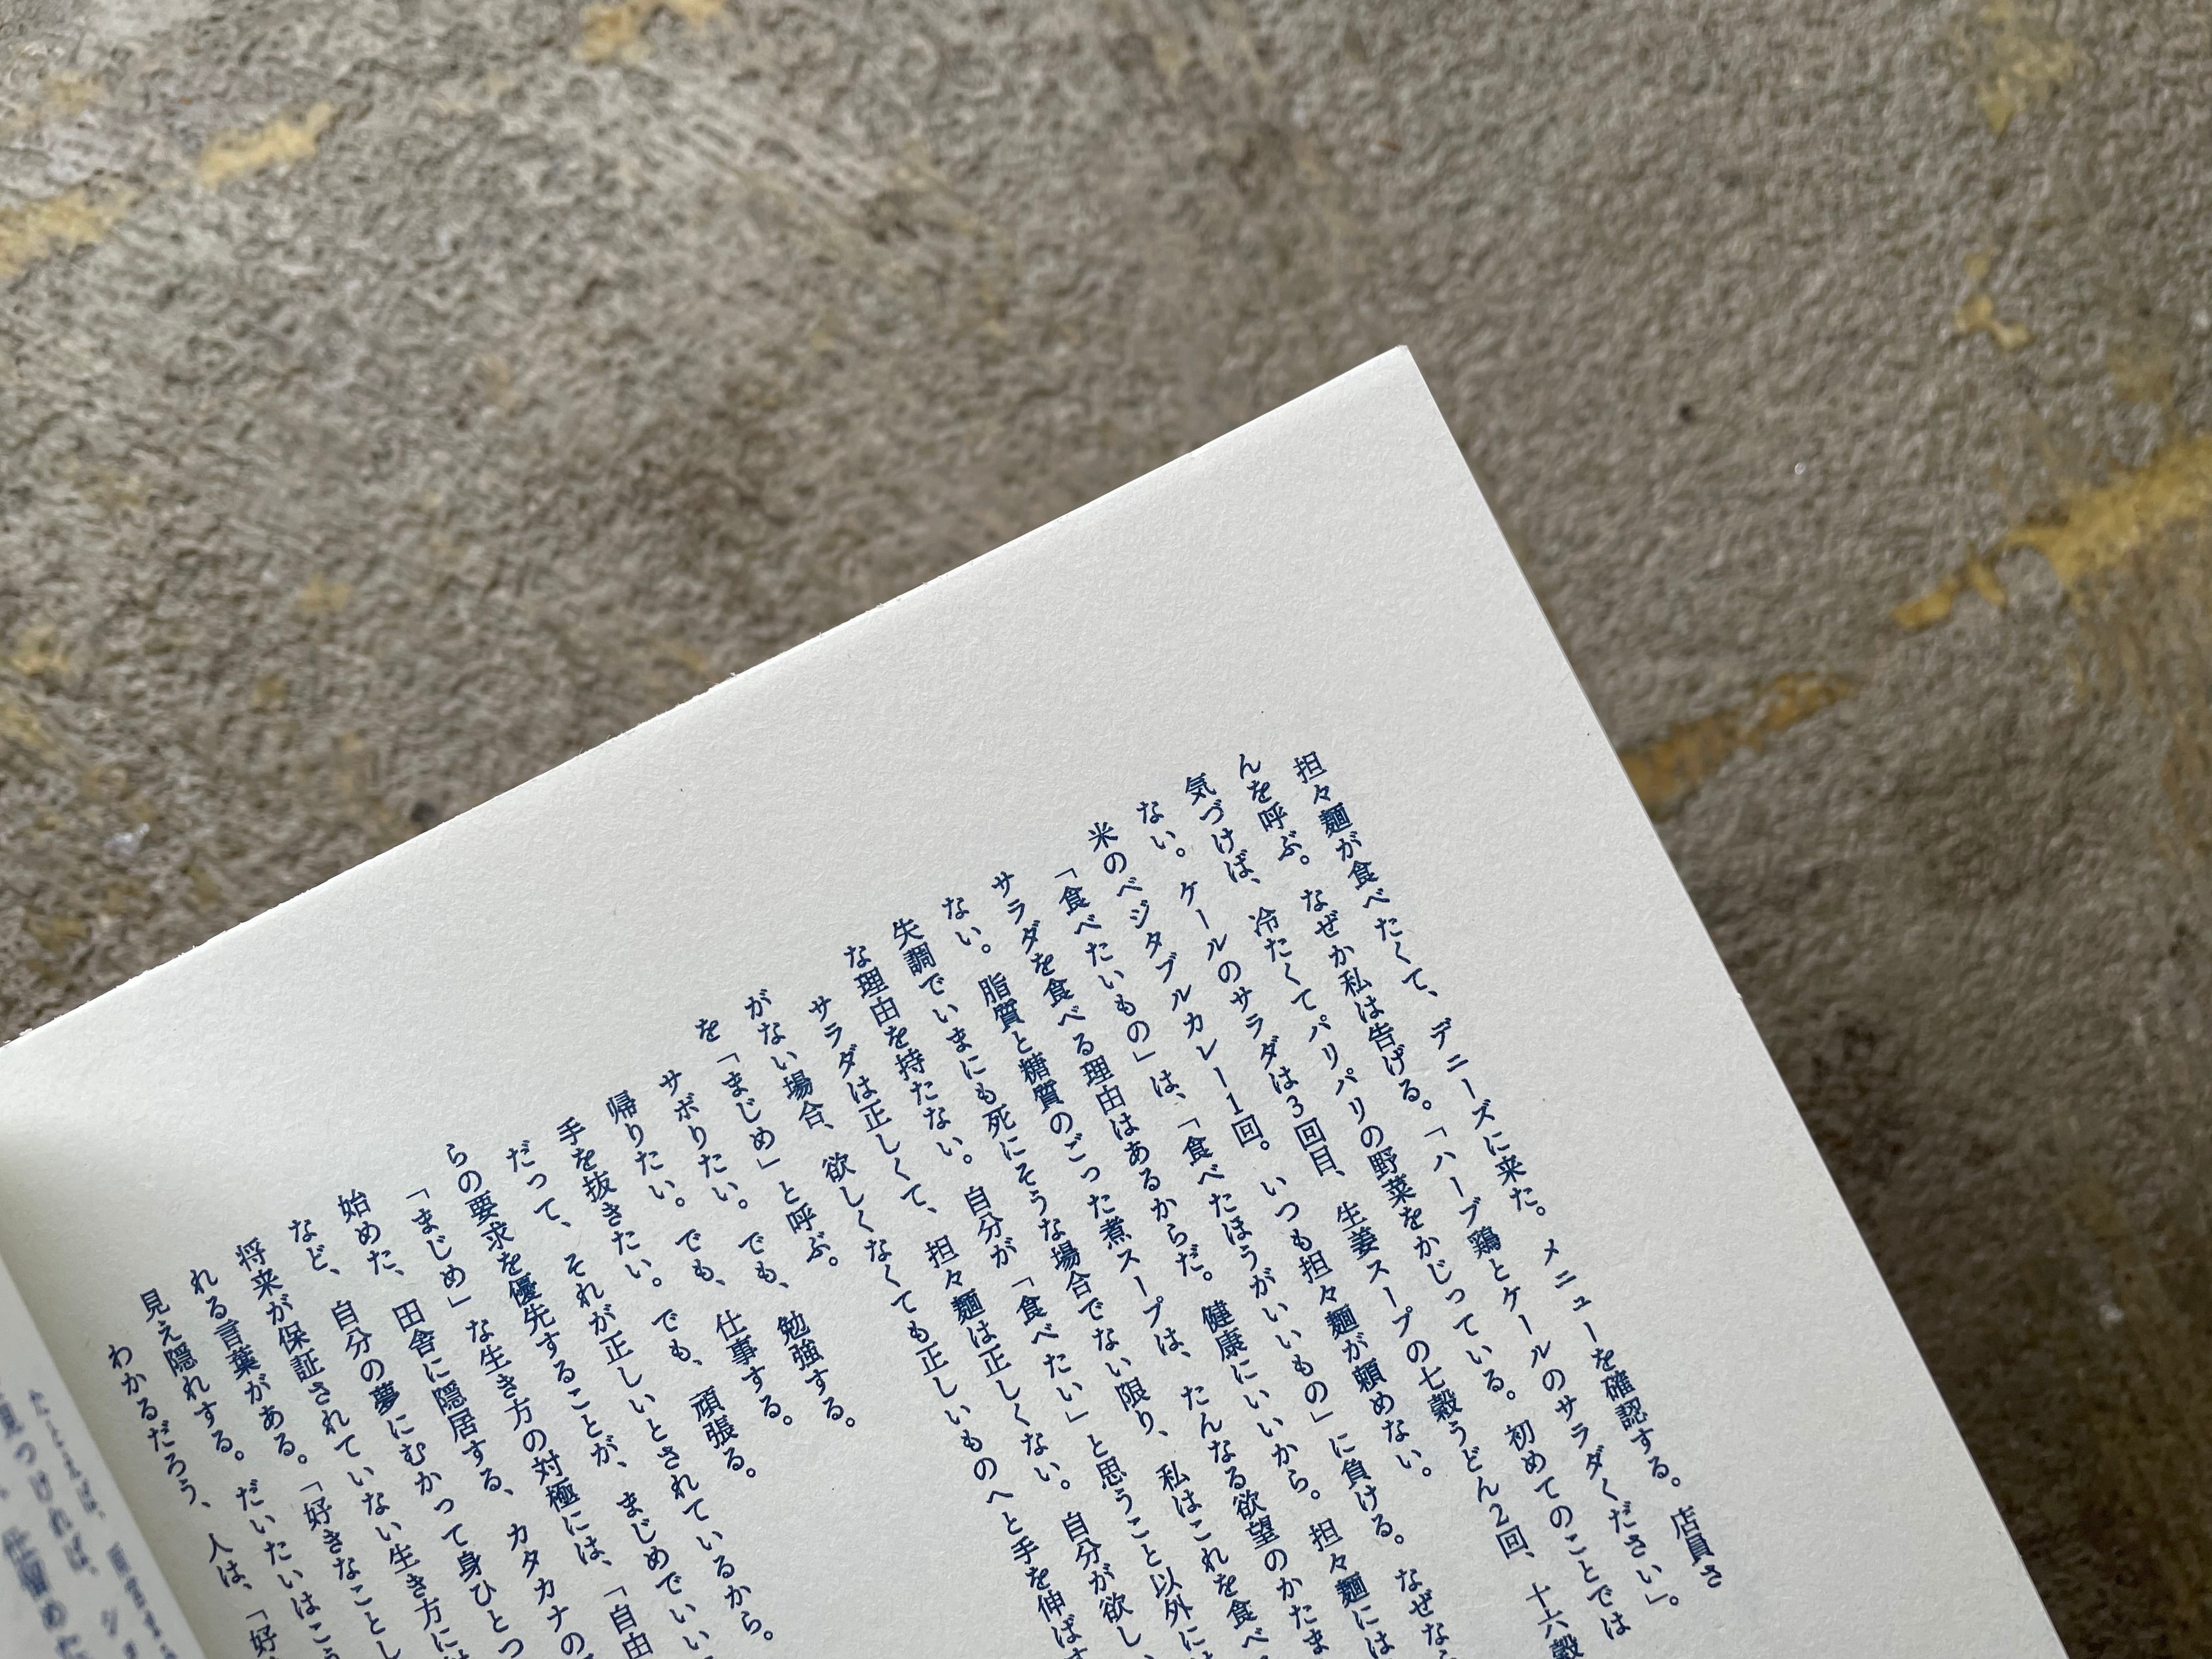 担々麺が食べたくて、デニーズに来た。メニューを確認する。店員さ
んを呼ぶ。なぜか私は告げる。「ハーブ鶏とケールのサラダください」。
気づけば、冷たくてパリパリの野菜をかじっている。初めてのことでは
ない。ケールのサラダは3回目、生姜スープの七穀うどん2回、十六穀
米のベジタブルカレー1回。いつも担々麺が頼めない。
「食べたいもの」は、「食べたほうがいいもの」に負ける。なぜなら
サラダを食べる理由はあるからだ。健康にいいから。担々麺には
ない。脂質と糖質のごった煮スープは、たんなる欲望のかたま
失調でいまにも死にそうな場合でない限り、私はこれを食べ
な理由を持たない。自分が「食べたい」と思うこと以外に
サラダは正しくて、担々麺は正しくない。自分が欲し
がない場合、欲しくなくても正しいものへと手を伸ばす
を「まじめ」と呼ぶ。
サボりたい。でも、勉強する。
帰りたい。でも、仕事する。
手を抜きたい。でも、頑張る。
だって、それが正しいとされているから。
らの要求を優先することが、まじめでいい
「まじめ」な生き方の対極には、「自由
始めた、田舎に隠居する、カタカナの
など、自分の夢にむかって身ひとつ
将来が保証されていない生き方には
れる言葉がある。「好きなことし
見え隠れする。だいたいはこう
わかるだろう、人は、「好
たとえば、
見つければ、
仕留めた